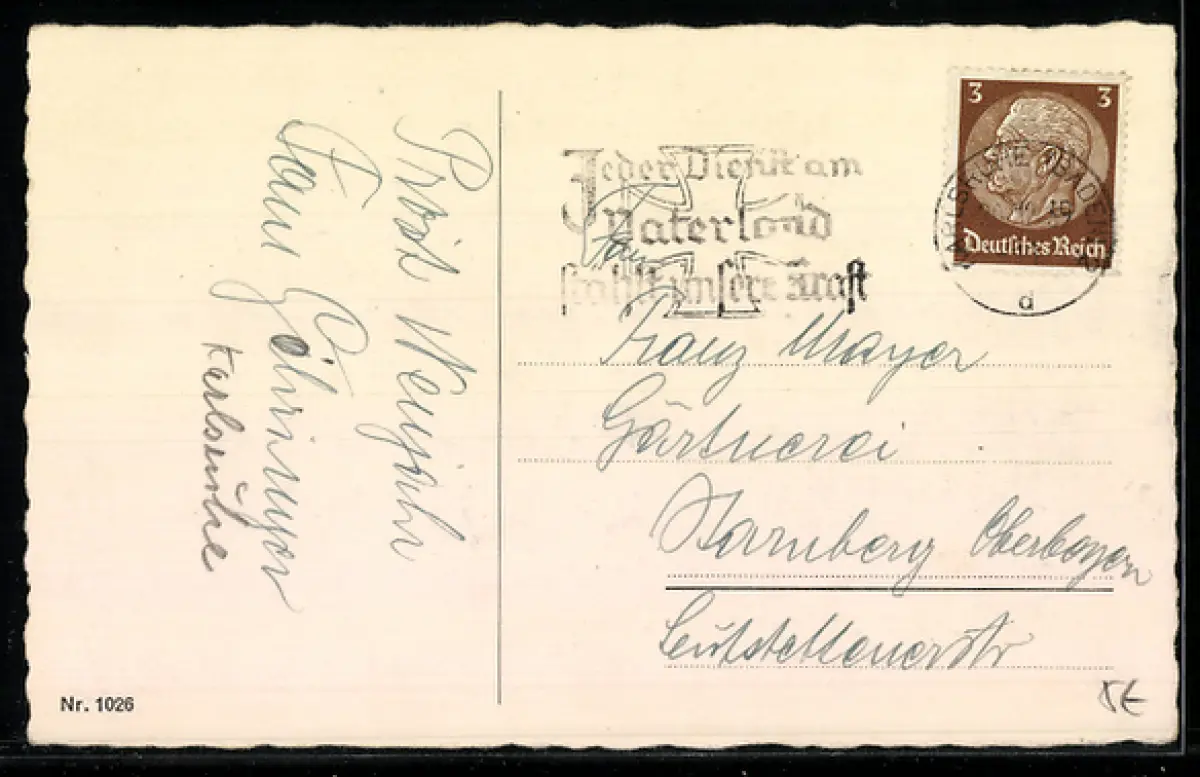 Prosit Neujahr
Fam Göhringer
Karlsruhe
Nr. 1026
Jeder Dienst am
Vaterland
stählt unsere Kraft
3 3
Deutsches Reich
KARLSRUHE (BADEN)
d
Fam
Franz Mayer
Gärtnerei
Starnberg Oberbayern
Leutstettenerstr